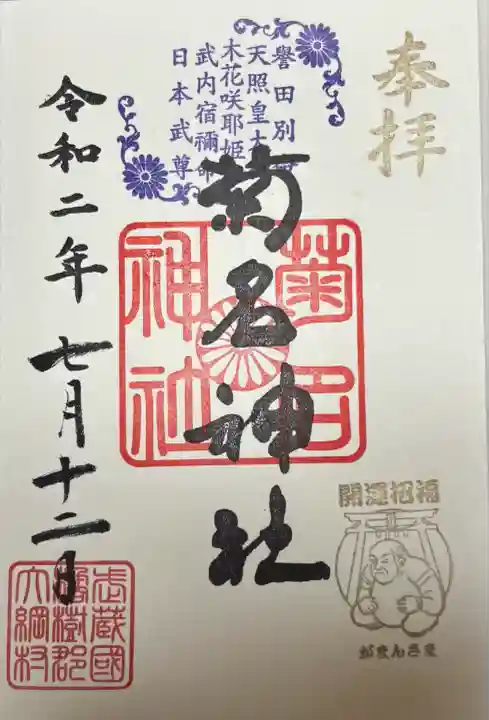 奉拝
譽田別
天照皇大
木花咲耶姫
武内宿禰命
日本武尊
菊名神社
菊名
神社
開運招福
がまんさま
令和二年七月十二日
武蔵國
橘樹郡
大綱村